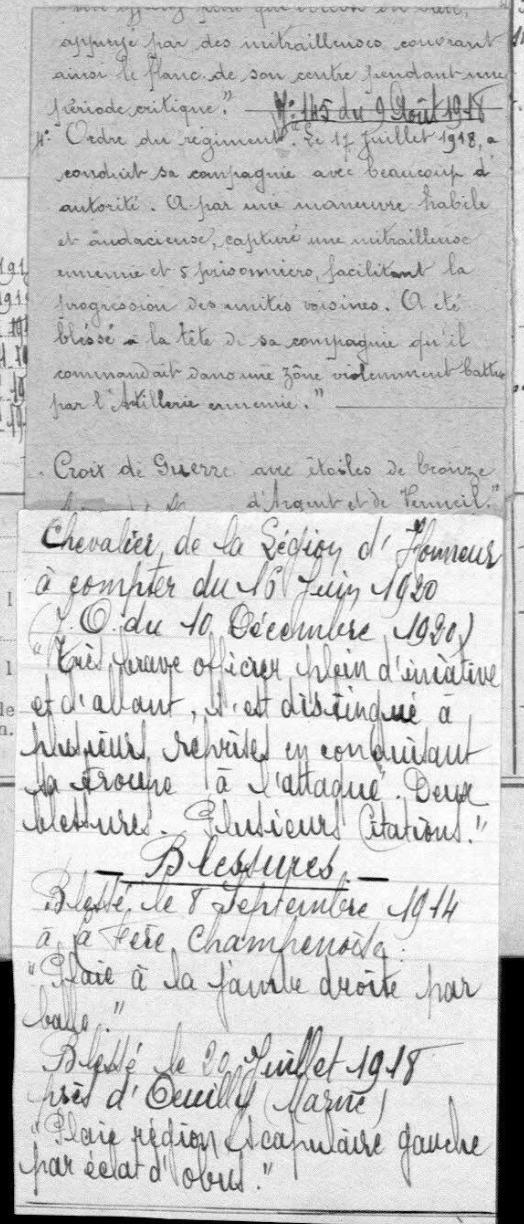 appuyé par des mitrailleuses couvrant
ainsi le flanc de son centre pendant une
période critique." N° 145 du 9 Août 1918
4° "Ordre du régiment" "Le 17 Juillet 1918, a
conduit sa compagnie avec beaucoup d'
autorité. A par une maneuvre habile
et audacieuse, capturé une mitrailleuse
ennemie et 5 prisonniers, facilitant la
progression des unités voisines. A été
blessé à la tête de sa compagnie qu'il
commandait dans une zône violemment battue
par l'Artillerie ennemie."
Croix de Guerre avec étoiles de bronze
d'Argent et de Vermeil."
Chevalier de la Légion d'Honneur
à compter du 16 Juin 1920
(J.O. du 10 Décembre 1920)
"Très brave officier, plein d'iniative
et d'allant, s'est distingué à
plusieurs reprises en conduisant
sa troupe à l'attaque. Deux
blessures. Plusieurs Citations."
Blessures
Blessé le 8 Septembre 1914
à la Fère Champenoise:
"Plaie à la jambe droite par
balle."
Blessé le 20 Juillet 1918
près d'Oeuilly (Marne)
"Plaie région scapulaire gauche
par éclat d'obus."